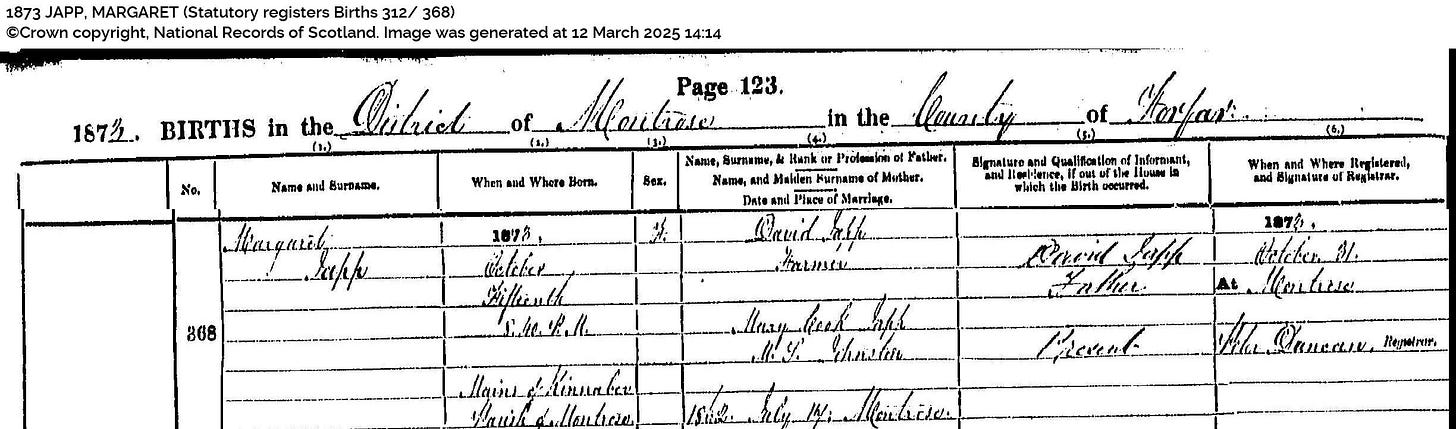 1873 JAPP, MARGARET (Statutory registers Births 312/ 368)
©Crown copyright, National Records of Scotland. Image was generated at 12 March 2025 14:14
Page 123.
1873. BIRTHS in the District of Montrose in the County of Forfar
(1.) (2.) (3.) (4.) (5.) (6.)
No.
Name and Surname.
When and Where Born.
Sex.
Name, Surname, & Rank or Profession of Father.
Name, and Maiden Surname of Mother.
Date and Place of Marriage.
Signature and Qualification of Informant,
and Residence, if out of the House in
which the Birth occurred.
When and Where Registered,
and Signature of Registrar.
368
Margaret
Japp
1873,
October
Fifteenth
P.M.
Mains of Kinnaber
Parish of Montrose
F.
David Japp
Farmer
Mary Cook Japp
M. S. Johnston
July 17. Montrose.
David Japp
Father
Present
1873,
October 31.
At Montrose
Peter Duncan, Registrar.